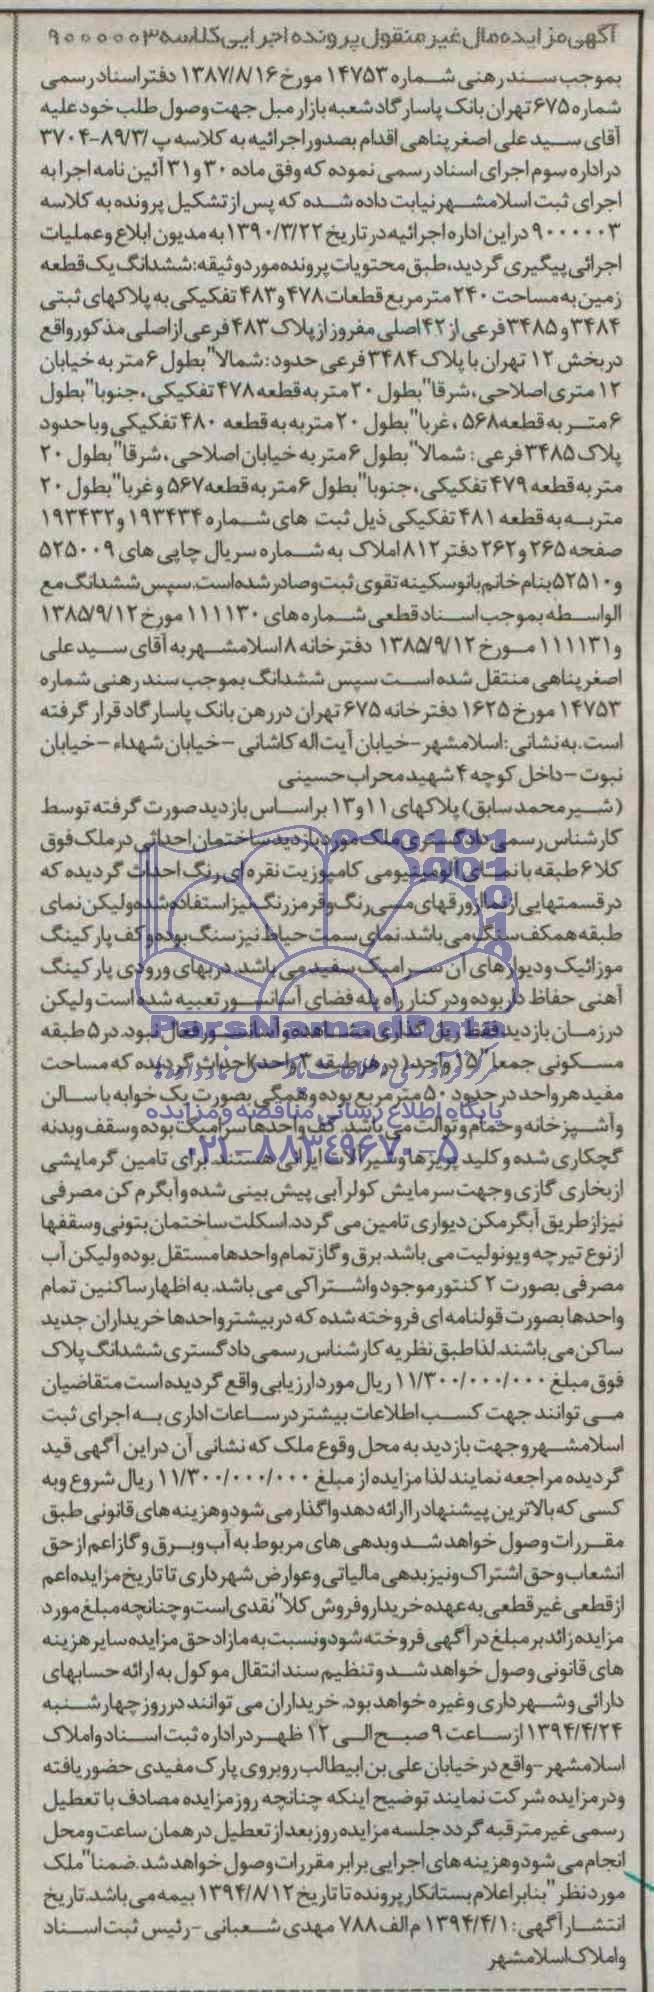 آگهی مزایده مال غیر منقول پرونده اجرایی کلاسه ۹۰۰۰۰۰۳
بموجب سند رهنی شماره ۱۴۷۵۳ مورخ ۱۳۸۷/۸/۱۶ دفتر اسناد رسمی
شماره ۶۷۵ تهران بانک پاسارگاد شعبه بازار مبل جهت وصول طلب خود علیه
آقای سید علی اصغر پناهی اقدام بصدور اجرائیه به کلاسه پ/۳/۸۹-۳۷۰۴
در اداره سوم اجرای اسناد رسمی نموده که وفق ماده ۳۰ و ۳۱ آئین نامه اجرا به
اجرای ثبت اسلامشهر نیابت داده شده که پس از تشکیل پرونده به کلاسه
۹۰۰۰۰۰۳ در این اداره اجرائیه در تاریخ ۱۳۹۰/۳/۲۲ به مدیون ابلاغ و عملیات
اجرائی پیگیری گردید، طبق محتویات پرونده مورد وثیقه: ششدانگ یک قطعه
زمین به مساحت ۲۴۰ متر مربع قطعات ۴۷۸ و ۴۸۳ تفکیکی به پلاکهای ثبتی
۳۴۸۴ و ۳۴۸۵ فرعی از ۴۲ اصلی مفروز از پلاک ۴۸۳ فرعی از اصلی مذکور واقع
در بخش ۱۲ تهران با پلاک ۳۴۸۴ فرعی حدود: شمالا" بطول ۶ متر به خیابان
۱۲ متری اصلاحی، شرقا" بطول ۲۰ متر به قطعه ۴۷۸ تفکیکی، جنوبا" بطول
۶ متر به قطعه ۵۶۸، غربا" بطول ۲۰ متر به به قطعه ۴۸۰ تفکیکی و با حدود
پلاک ۳۴۸۵ فرعی: شمالا" بطول ۶ متر به خیابان اصلاحی، شرقا" بطول ۲۰
متر به قطعه ۴۷۹ تفکیکی، جنوبا" بطول ۶ متر به قطعه ۵۶۷ و غربا" بطول ۲۰
متر به به قطعه ۴۸۱ تفکیکی ذیل ثبت های شماره ۱۹۳۴۳۴ و ۱۹۳۴۳۲
صفحه ۲۶۵ و ۲۶۲ دفتر ۸۱۲ املاک به شماره سریال چاپی های ۵۲۵۰۰۹
و ۵۲۵۱۰ بنام خانم بانو سکینه تقوی ثبت و صادر شده است. سپس ششدانگ مع
الواسطه بموجب اسناد قطعی شماره های ۱۱۱۱۳۰ مورخ ۱۳۸۵/۹/۱۲
و ۱۱۱۱۳۱ مورخ ۱۳۸۵/۹/۱۲ دفترخانه ۸ اسلامشهر به آقای سید علی
اصغر پناهی منتقل شده است سپس ششدانگ بموجب سند رهنی شماره
۱۴۷۵۳ مورخ ۱۶۲۵ دفترخانه ۶۷۵ تهران در رهن بانک پاسارگاد قرار گرفته
است. به نشانی: اسلامشهر - خیابان آیت اله کاشانی - خیابان شهداء - خیابان
نبوت - داخل کوچه ۴ شهید محراب حسینی
(شیر محمد سابق) پلاکهای ۱۱ و ۱۳ بر اساس بازدید صورت گرفته توسط
کارشناس رسمی دادگستری ملک مورد بازدید ساختمان احداثی در ملک فوق
کلا ۶ طبقه با نمای آلومینیومی کامپوزیت نقره ای رنگ احداث گردیده که
در قسمتهایی از نما از ورقهای مسی رنگ و قرمز رنگ نیز استفاده شده ولیکن نمای
طبقه همکف سنگ می باشد. نمای سمت حیاط نیز سنگ بوده و کف پارکینگ
موزائیک و دیوارهای آن سرامیک سفید می باشد. دربهای ورودی پارکینگ
آهنی حفاظ دار بوده و در کنار راه پله فضای آسانسور تعبیه شده است ولیکن
در زمان بازدید فقط ریل گذاری مشاهده و آسانسور فعال نبود. در ۵ طبقه
مسکونی جمعا" (۱۵ واحد) (در هر طبقه ۳ واحد) احداث گردیده که مساحت
مفید هر واحد در حدود ۵۰ متر مربع بوده و همگی بصورت یک خوابه با سالن
و آشپزخانه و حمام و توالت می باشد. کف واحدها سرامیک بوده و سقف و بدنه
گچکاری شده و کلید پریزها و شیرآلات ایرانی هستند. برای تامین گرمایشی
از بخاری گازی و جهت سرمایش کولر آبی پیش بینی شده و آبگرم کن مصرفی
نیز از طریق آبگرمکن دیواری تامین می گردد. اسکلت ساختمان بتونی و سقفها
از نوع تیرچه و یونولیت می باشد. برق و گاز تمام واحدها مستقل بوده ولیکن آب
مصرفی بصورت ۲ کنتور موجود و اشتراکی می باشد. به اظهار ساکنین تمام
واحدها بصورت قولنامه ای فروخته شده که در بیشتر واحدها خریداران جدید
ساکن می باشند. لذا طبق نظریه کارشناس رسمی دادگستری ششدانگ پلاک
فوق مبلغ ۱۱/۳۰۰/۰۰۰/۰۰۰ ریال مورد ارزیابی واقع گردیده است متقاضیان
می توانند جهت کسب اطلاعات بیشتر در ساعات اداری به اجرای ثبت
اسلامشهر و جهت بازدید به محل وقوع ملک که نشانی آن در این آگهی قید
گردیده مراجعه نمایند لذا مزایده از مبلغ ۱۱/۳۰۰/۰۰۰/۰۰۰ ریال شروع و به
کسی که بالاترین پیشنهاد را ارائه دهد واگذار می شود و هزینه های قانونی طبق
مقررات وصول خواهد شد و بدهی های مربوط به آب و برق و گاز اعم از حق
انشعاب و حق اشتراک و نیز بدهی مالیاتی و عوارض شهرداری تا تاریخ مزایده اعم
از قطعی غیر قطعی به عهده خریدار و فروش کلا" نقدی است و چنانچه مبلغ مورد
مزایده زائد بر مبلغ در آگهی فروخته شود و نسبت به مازاد حق مزایده سایر هزینه
های قانونی وصول خواهد شد و تنظیم سند انتقال موکول به ارائه حسابهای
دارائی و شهرداری و غیره خواهد بود. خریداران می توانند در روز چهارشنبه
۱۳۹۴/۴/۲۴ از ساعت ۹ صبح الی ۱۲ ظهر در اداره ثبت اسناد و املاک
اسلامشهر - واقع در خیابان علی بن ابیطالب روبروی پارک مفیدی حضور یافته
و در مزایده شرکت نمایند توضیح اینکه چنانچه روز مزایده مصادف با تعطیل
رسمی غیر مترقبه گردد جلسه مزایده روز بعد از تعطیل در همان ساعت و محل
انجام می شود و هزینه های اجرایی برابر مقررات وصول خواهد شد. ضمنا" ملک
مورد نظر "بنابر اعلام بستانکار پرونده تا تاریخ ۱۳۹۴/۸/۱۲ بیمه می باشد. تاریخ
انتشار آگهی: ۱۳۹۴/۴/۱ م الف ۷۸۸ مهدی شعبانی - رئیس ثبت اسناد
و املاک اسلامشهر
ParsNamadData
پایگاه اطلاع رسانی مناقصه و مزایده
۰۲۱-۸۸۳۴۹۶۷۰-۵